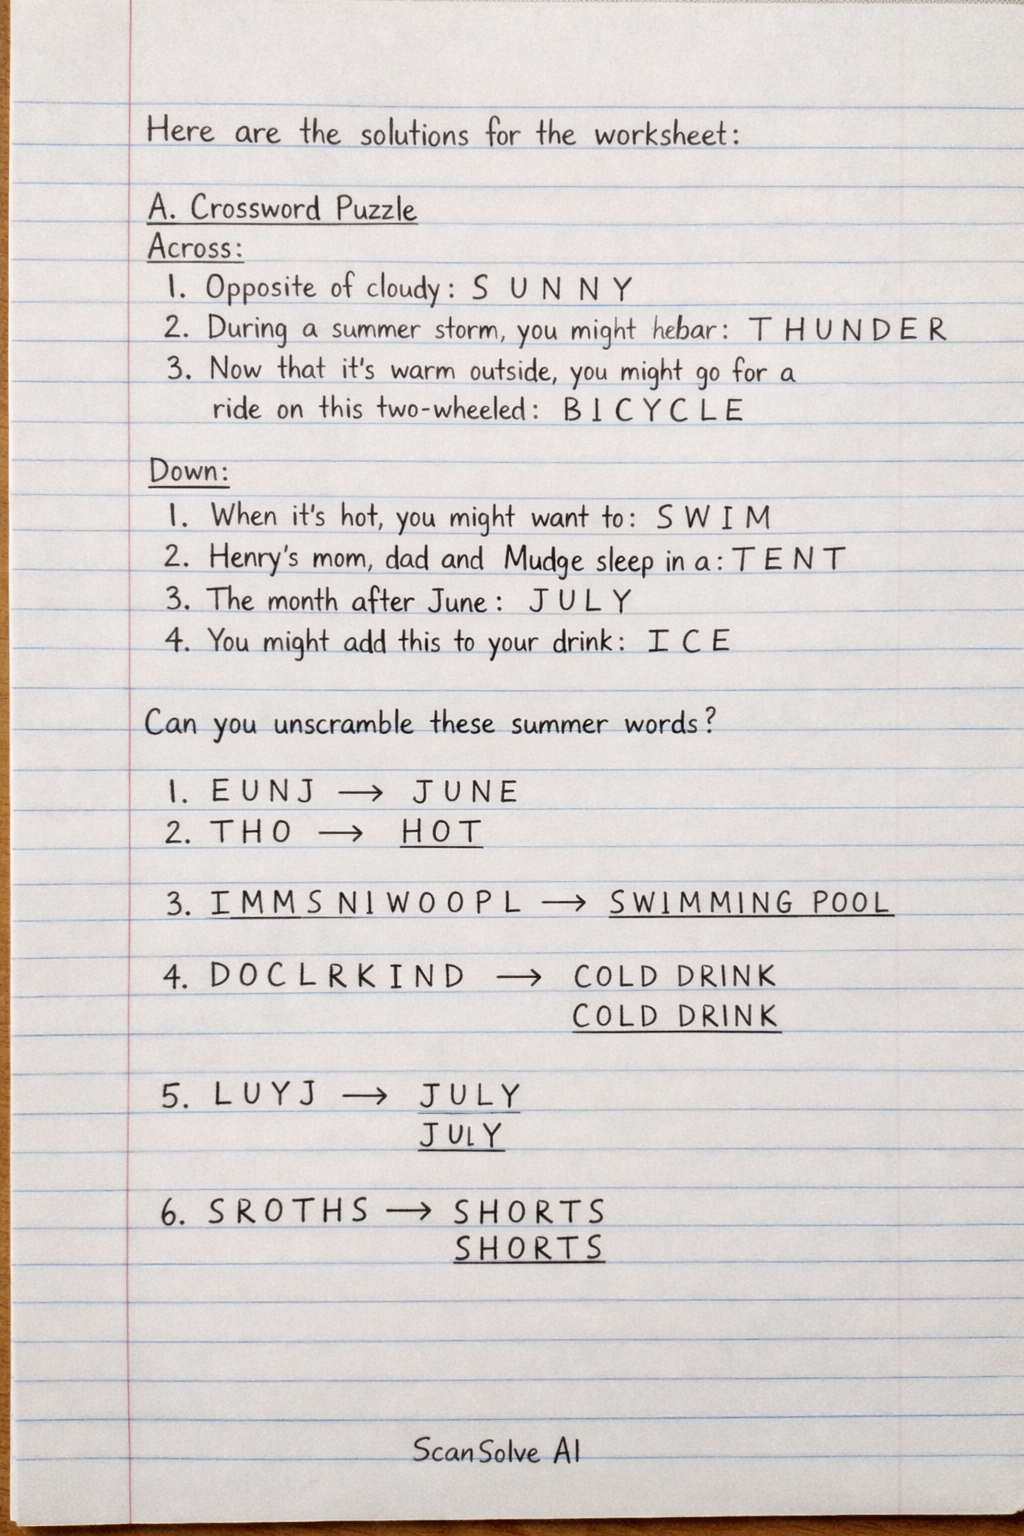 Here are the solutions for the worksheet:
A. Crossword Puzzle
Across:
1. Opposite of cloudy: S U N N Y
2. During a summer storm, you might hebar: T H U N D E R
3. Now that it's warm outside, you might go for a
ride on this two-wheeled: B I C Y C L E
Down:
1. When it's hot, you might want to: S W I M
2. Henry's mom, dad and Mudge sleep in a: T E N T
3. The month after June: J U L Y
4. You might add this to your drink: I C E
Can you unscramble these summer words?
1. E U N J → J U N E
2. T H O → H O T
3. I M M S N I W O O P L → SWIMMING POOL
4. D O C L R K I N D → COLD DRINK
COLD DRINK
5. L U Y J → J U L Y
J U L Y
6. S R O T H S → S H O R T S
S H O R T S
ScanSolve AI